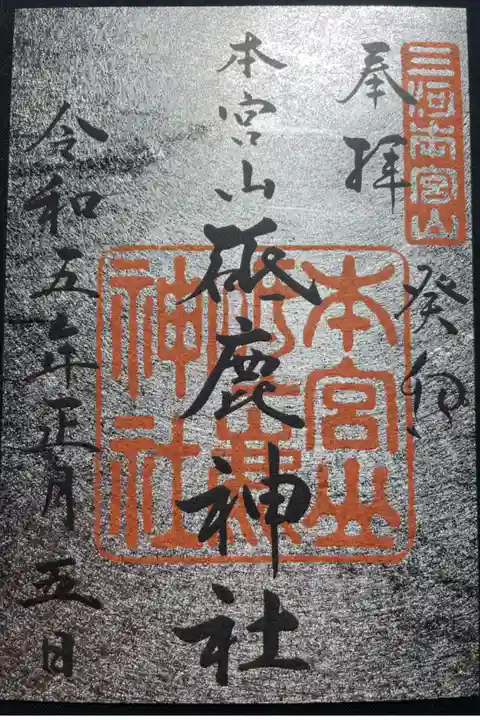 三河本宮山
奉拝
癸卯
本宮山砥鹿神社
本宮山
砥鹿
神社
令和五年正月五日